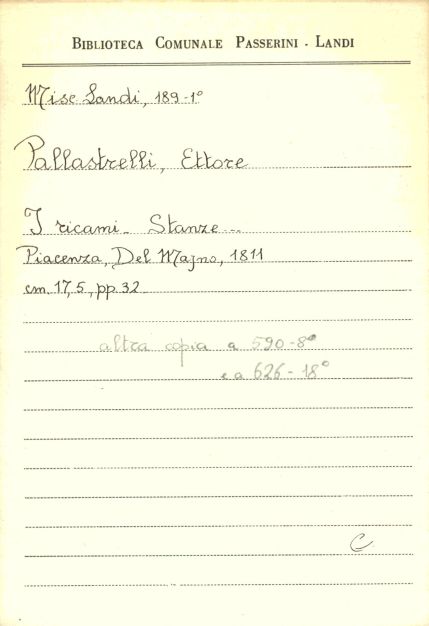 BIBLIOTECA COMUNALE PASSERINI - LANDI
Misc Landi, 189-1°
Pallastrelli, Ettore
I ricami - Stanze...
Piacenza, Del Majno, 1811
cm. 17,5, pp. 32
altra copia a 590-8°
e a 626-18°
C